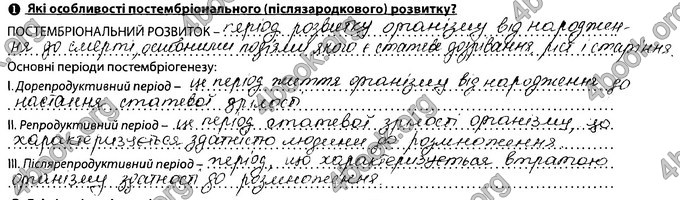 1 Які особливості постембріонального (післязародкового) розвитку?
ПОСТЕМБРІОНАЛЬНИЙ РОЗВИТОК – період розвитку організму від народжен-
ня до смерті, основними подіями якого є статеве дозрівання, ріст і старіння.
Основні періоди постембріогенезу:
I. Дорепродуктивний період – це період життя організму від народження до
настання статевої зрілості
II. Репродуктивний період – це період статевої зрілості організму, що
характеризується здатністю людини до розмноження
III. Післярепродуктивний період – період, що характеризується втратою
організму здатності до розмноження